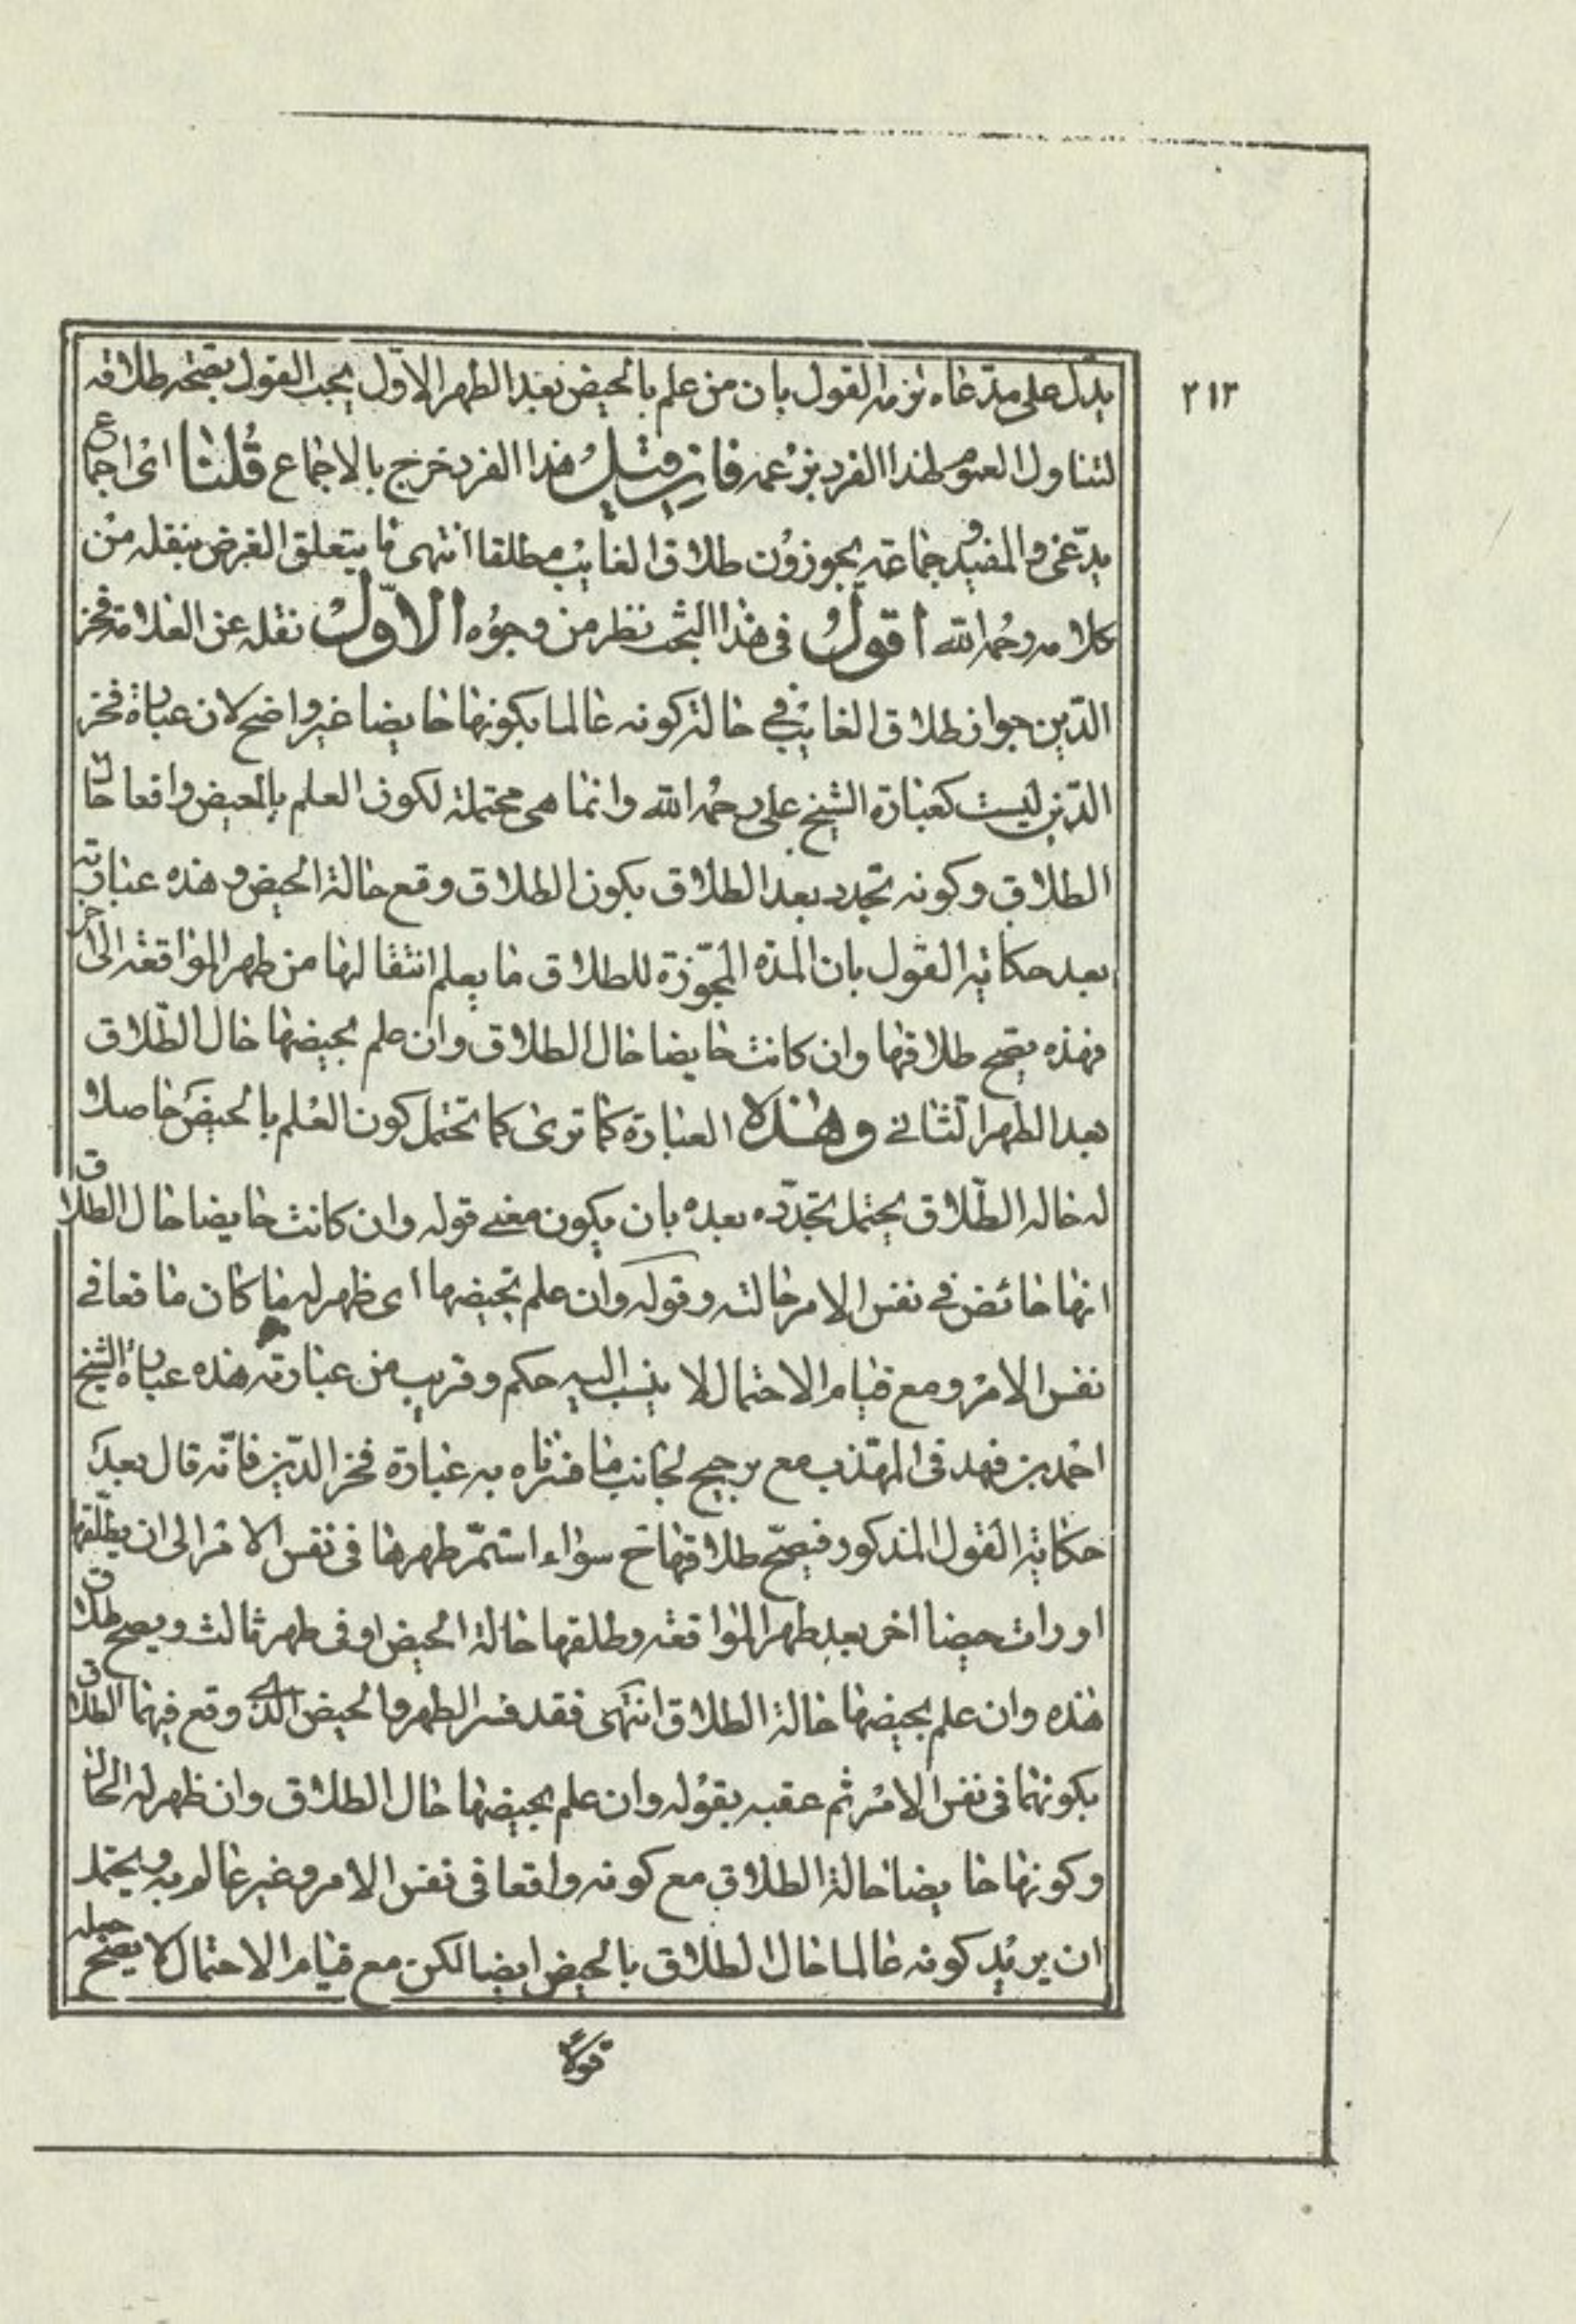 ٢١٣
يدل على مدّعاه لزمه القول بان من علم بالحيض بعد الطهر الاوّل يجب القول بصحّة طلاقه
لتناول العموم لهذا الفرد بزعمه فان قيل هذا الفرد خرج بالاجماع قلنا اىّ اجماع
يدّعى والمفيد وجماعة يجوزون طلاق الغايب مطلقا انتهى ما يتعلق الغرض بنقله من
كلامه رحمه الله أقول فى هذا البحث نظر من وجوه الاوّل نقله عن العلامة فخر
الدّين جواز طلاق الغايب فى حالة كونه عالما بكونها حايضا غير واضح لان عبارة فخر
الدّين ليست كعبارة الشيخ على رحمه الله وانما هى محتملة لكون العلم بالحيض واقعا حال
الطلاق وكونه تجدد بعد الطلاق بكون الطلاق وقع حالة الحيض وهذه عبارته
بعد حكاية القول بان المدّه المجوّزة للطلاق ما يعلم انتقالها من طهر المواقعة الى آخر
فهذه يصح طلاقها وان كانت حايضا حال الطلاق وان علم بحيضها حال الطّلاق
بعد الطهر الثّانى وهذه العبارة كما ترى كما تحتمل كون العلم بالحيض حاصلا
له حاله الطّلاق يحتمل تجدّده بعده بان يكون معنى قوله وان كانت حايضا حال الطلاق
انها حائض فى نفس الامر حالته وقوله وان علم بحيضها اى ظهر له ما كان ماقعا فى
نفس الامر ومع قيام الاحتمال لا ينسب اليه حكم وقريب من عبارته هذه عبارة الشيخ
احمد بن فهد فى المهذب مع ترجيح لجانب ما فسرناه به عبارة فخر الدّين فانّه قال بعد
حكاية القول المذكور فيصحّ طلاقها ح سواء استمرّ طهرها فى نفس الامر الى ان يطلّقها
او رات حيضا اخر بعد طهر المواقعة وطلقها حالة الحيض او فى طهر ثالث ويصح طلاق
هذه وان علم بحيضها حالة الطلاق انتهى فقد فسر الطهر والحيض الذى وقع فيهما الطلاق
بكونهما فى نفس الامر ثم عقبه بقوله وان علم بحيضها حال الطلاق وان ظهر له الحال
وكونها حايضا حالة الطلاق مع كونه واقعا فى نفس الامر وغير عالم به ويحتمل
ان يريد كونه عالما حال الطلاق بالحيض ايضا لكن مع قيام الاحتمال لا يصح جعله
قولا